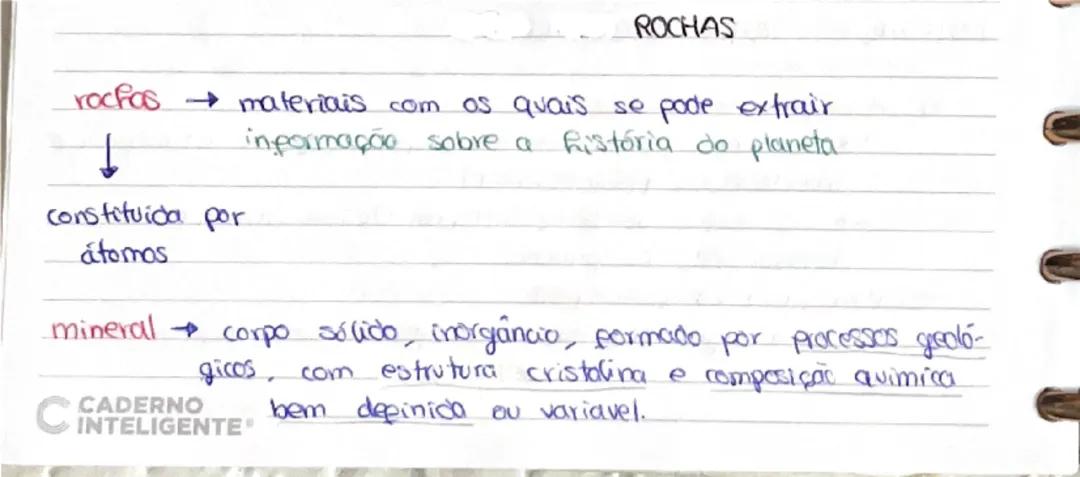 ROCHAS
rochas → materiais com os quais se pode extrair
informação sobre a história do planeta
↓
constituida por
átomos
mineral → corpo sólido, inorgâncio, formado por processos geoló-
gicos, com estrutura cristalina e composição química
bem definida ou variavel.
CADERNO
INTELIGENTE®